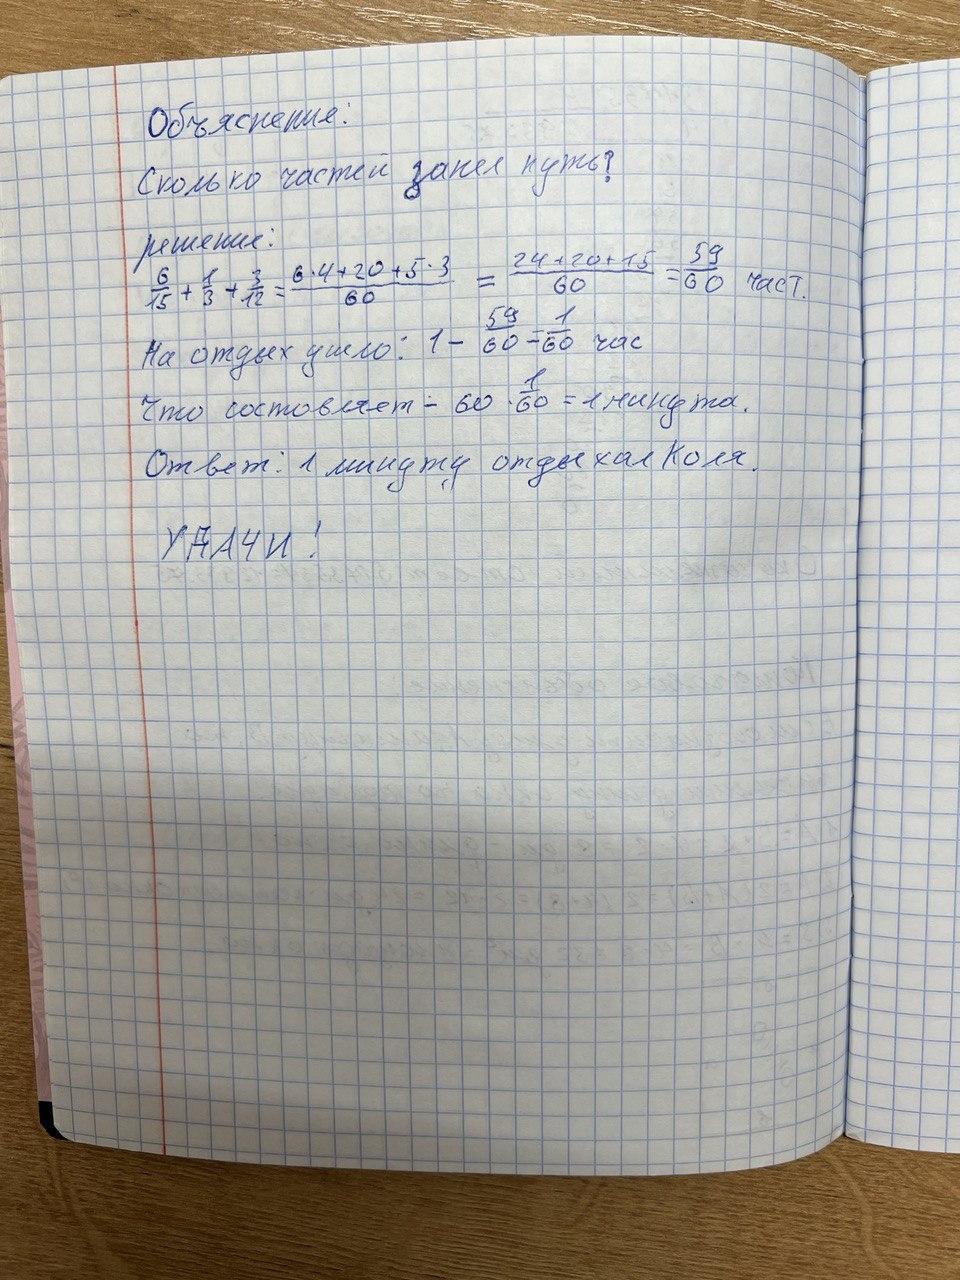 Объяснение:
Сколько частей занел путь?
решение:
6/15 + 1/3 + 3/12 = 6·4+20+5·3/60 = 24+20+15/60 = 59/60 част.
На отдых ушло: 1 - 59/60 = 1/60 час
Что состовляет - 60 · 1/60 = 1 минута.
Ответ: 1 минуту отдыхал Коля.
УДАЧИ!